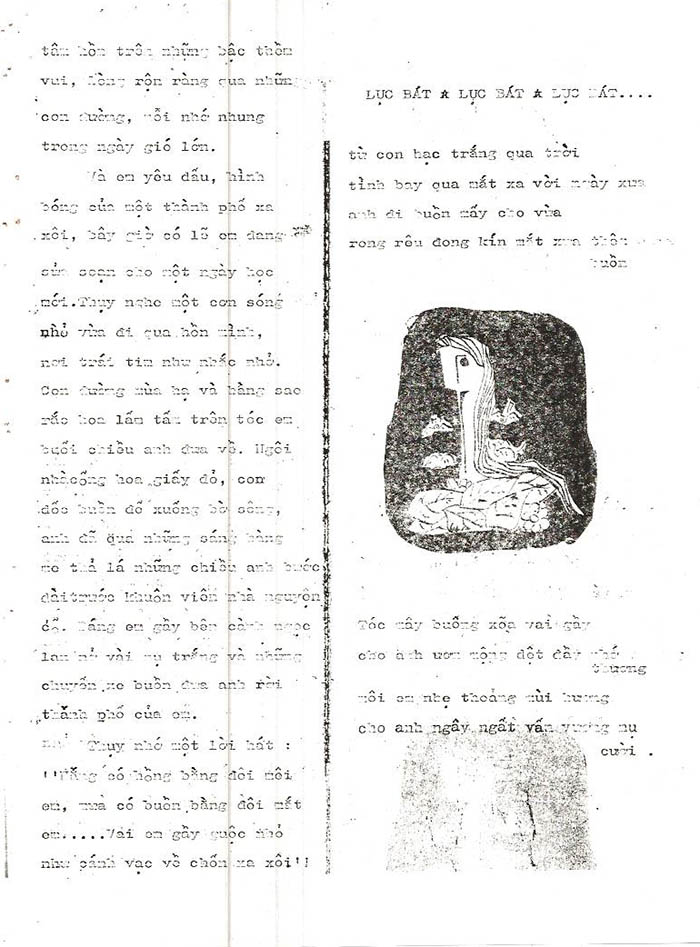 tâm hồn trên những bậc thềm
vui, lòng rộn ràng qua những
con đường, nỗi nhớ nhung
trong ngày gió lớn.
Và em yêu dấu, hình
bóng của một thành phố xa
xôi, bây giờ có lẽ em đang
sửa soạn cho một ngày học
mới.Thụy nghe một cơn sóng
nhỏ vừa đi qua hồn mình,
nơi trái tim như nhắc nhỏ.
Con đường mùa hạ và hàng sao
rắc hoa lấm tấm trên tóc em
buổi chiều anh đưa về. Ngôi
nhàcổng hoa giấy đỏ, con
dốc buồn đổ xuống bờ sông,
anh đã qua những sáng hàng
me thả lá những chiều anh bước
dàitrước khuôn viên nhà nguyện
cũ. Dáng em gầy bên cành ngọc
lan nở vài nụ trắng và những
chuyến xe buồn đưa anh rời
thành phố của em.
Thụy nhớ một lời hát :
''Nắng có hồng bằng đôi môi
em, mưa có buồn bằng đôi mắt
em.....Vai em gầy guộc nhỏ
như cánh vạc về chốn xa xôi''
LỤC BÁT ☆ LỤC BÁT ☆ LỤC BÁT....
từ con hạc trắng qua trời
tình bay qua mắt xa vời ngày xưa
anh đi buồn mấy cho vừa
rong rêu đong kín mắt xưa
buồn
Tóc mây buông xõa vai gầy
cho anh ươm mộng đột đầy nhớ
thương
môi em nhẹ thoảng mùi hương
cho anh ngây ngất vấn vương nụ
cười .